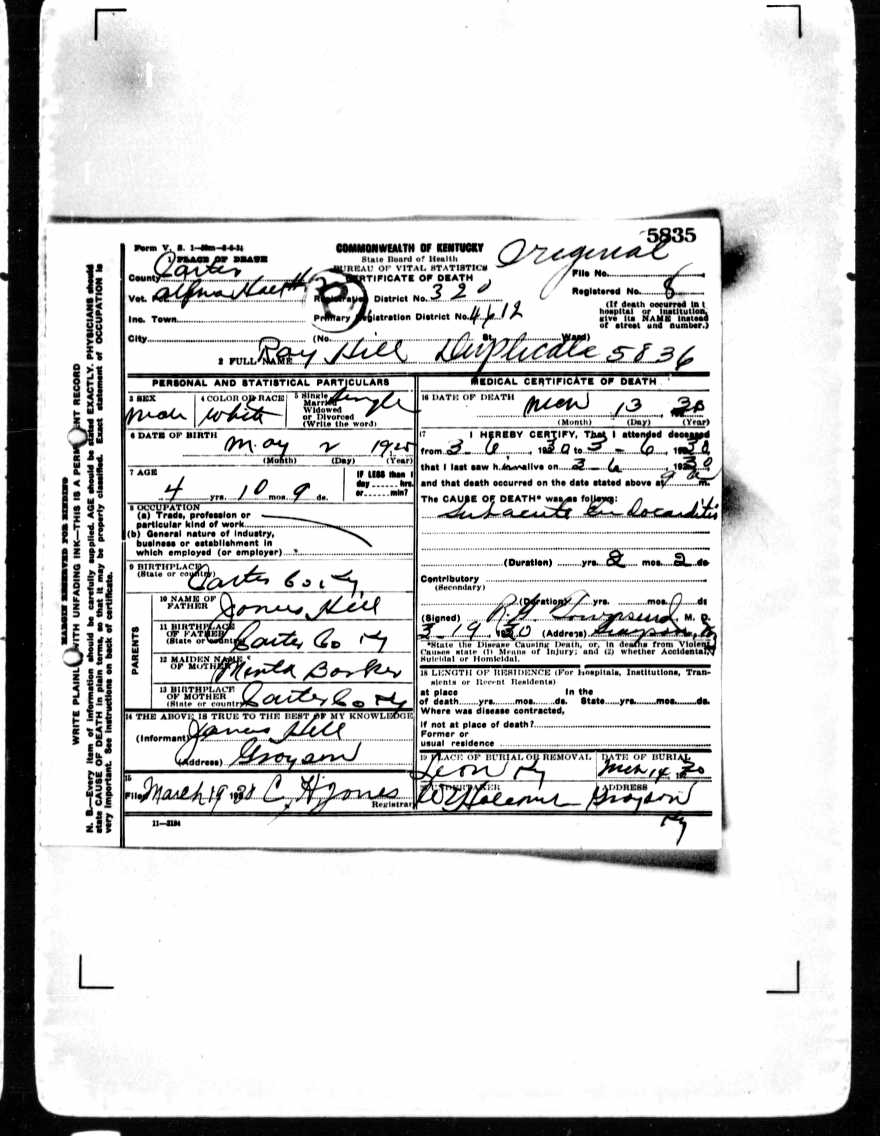 5835
Form V. S. 1
COMMONWEALTH OF KENTUCKY
Original
1 PLACE OF DEATH
State Board of Health
BUREAU OF VITAL STATISTICS
County Carter
CERTIFICATE OF DEATH
File No.
Vot.
Registration District No. 320
Registered No. 8
Inc. Town
Primary Registration District No. 4612
(If death occurred in
hospital or institution,
give its NAME instead
of street and number.)
City (No. St. Ward)
2 FULL NAME Ray Hill Duplicate 5836
PERSONAL AND STATISTICAL PARTICULARS
3 SEX
4 COLOR OR RACE White
5 Single Single
Married
Widowed
or Divorced
(Write the word)
6 DATE OF BIRTH
May 2 1925
(Month) (Day) (Year)
7 AGE
4 yrs. 10 mos. 9 ds.
IF LESS than 1
day hrs.
or min?
8 OCCUPATION
(a) Trade, profession or
particular kind of work
(b) General nature of industry,
business or establishment in
which employed (or employer)
9 BIRTHPLACE
(State or country) Carter Co Ky
PARENTS
10 NAME OF
FATHER Jonus Hill
11 BIRTHPLACE
OF FATHER
(State or country) Carter Co Ky
12 MAIDEN NAME
OF MOTHER Minta Barker
13 BIRTHPLACE
OF MOTHER
(State or country) Carter Co Ky
14 THE ABOVE IS TRUE TO THE BEST OF MY KNOWLEDGE
(Informant) Jonus Hill
(Address) Grayson
15
Filed March 19 1930 C. H. Jones
Registrar
11—3184
MEDICAL CERTIFICATE OF DEATH
16 DATE OF DEATH
Mch 13 30
(Month) (Day) (Year)
17 I HEREBY CERTIFY, That I attended deceased
from 3 - 6, 1930 to 3 - 6, 1930
that I last saw him alive on 3 - 6, 1930
and that death occurred on the date stated above at 9 a m.
The CAUSE OF DEATH* was as follows:
Subacute Endocarditis
(Duration) yrs. 2 mos. 2 ds
Contributory
(Secondary)
(Duration) yrs. mos. ds
(Signed) Townsend, M. D.
3 19, 1930 (Address) Grayson, Ky
*State the Disease Causing Death, or, in deaths from Violent
Causes state (1) Means of Injury; and (2) whether Accidental,
Suicidal or Homicidal.
18 LENGTH OF RESIDENCE (For Hospitals, Institutions, Tran-
sients or Recent Residents)
at place In the
of death yrs. mos. ds. State yrs. mos. ds.
Where was disease contracted,
if not at place of death?
Former or
usual residence
19 PLACE OF BURIAL OR REMOVAL
Leon Ky
DATE OF BURIAL
Mch 14 30
UNDERTAKER
ADDRESS
Grayson
Ky
MARGIN RESERVED FOR BINDING
WRITE PLAINLY WITH UNFADING INK—THIS IS A PERMANENT RECORD
N. B.—Every item of information should be carefully supplied. AGE should be stated EXACTLY. PHYSICIANS should
state CAUSE OF DEATH in plain terms, so that it may be properly classified. Exact statement of OCCUPATION is
very important. See instructions on back of certificate.